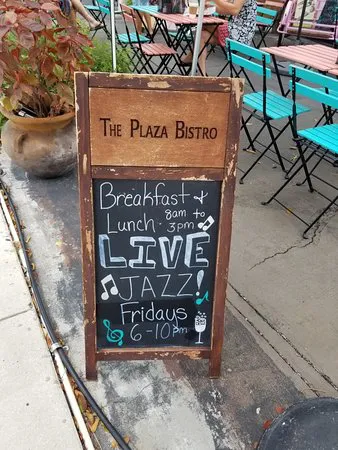 THE PLAZA BISTRO
Breakfast &
Lunch 8am to
3pm
LIVE
JAZZ!
Fridays
6-10pm